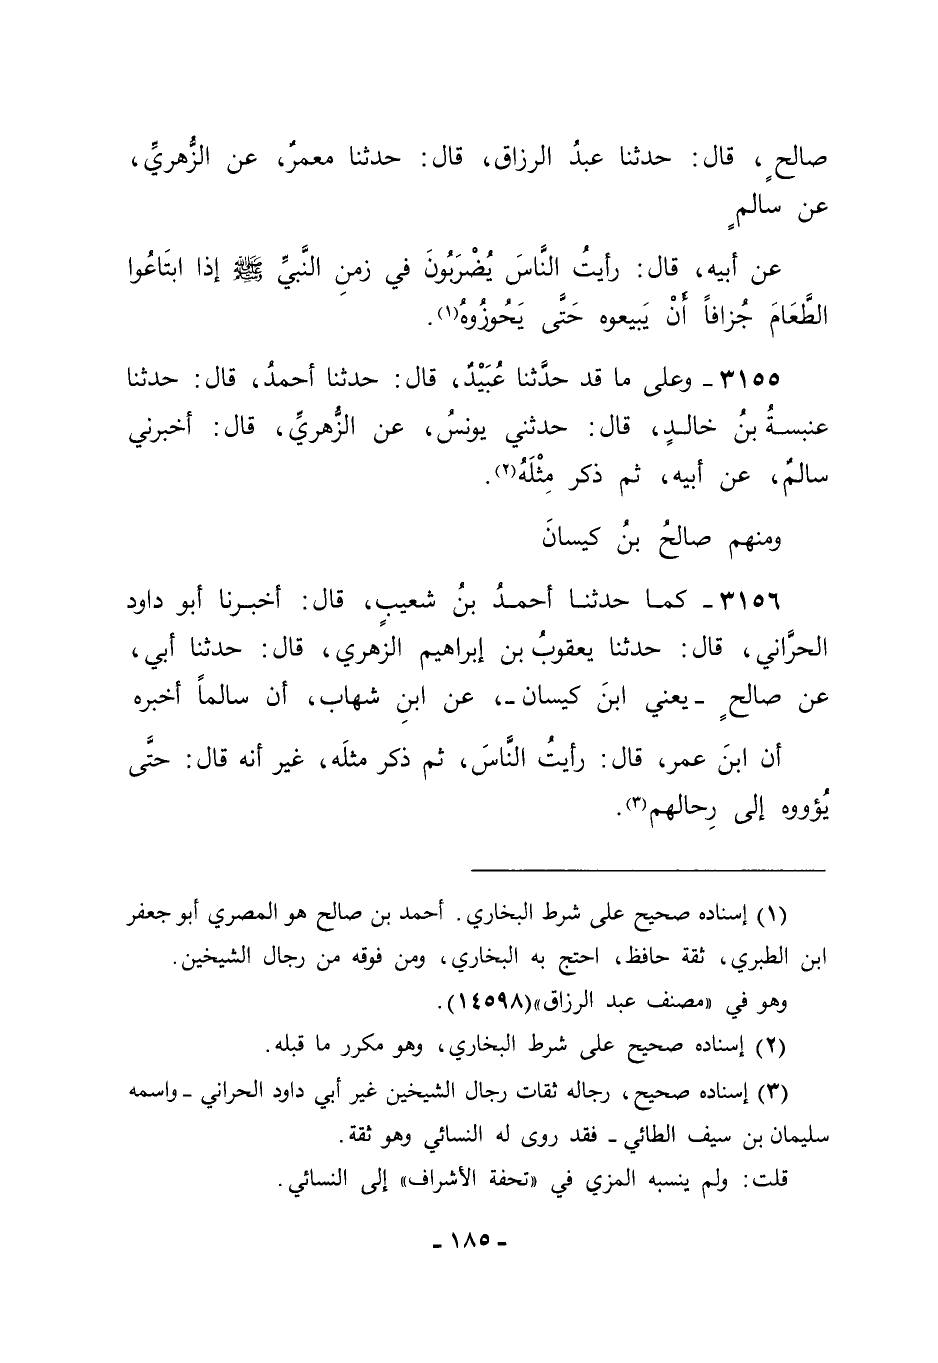 صالحٍ، قال: حدثنا عبدُ الرزاق، قال: حدثنا معمرٌ، عن الزُّهريِّ،
عن سالمٍ
عن أبيه، قال: رأيتُ النَّاسَ يُضْرَبُونَ في زمنِ النَّبيِّ ﷺ إذا ابتَاعُوا
الطَّعَامَ جُزافاً أَنْ يَبيعوه حَتَّى يَحُوزُوهُ(١).
٣١٥٥ ـ وعلى ما قد حدَّثنا عُبَيْدٌ، قال: حدثنا أحمدُ، قال: حدثنا
عنبسةُ بنُ خالدٍ، قال: حدثني يونسُ، عن الزُّهريِّ، قال: أخبرني
سالمٌ، عن أبيه، ثم ذكر مِثْلَهُ(٢).
ومنهم صالحُ بنُ كيسانَ
٣١٥٦ ـ كما حدثنا أحمدُ بنُ شعيبٍ، قال: أخبرنا أبو داود
الحرَّاني، قال: حدثنا يعقوبُ بن إبراهيم الزهري، قال: حدثنا أبي،
عن صالحٍ ـ يعني ابنَ كيسان ـ، عن ابنِ شهاب، أن سالماً أخبره
أن ابنَ عمر، قال: رأيتُ النَّاسَ، ثم ذكر مثلَه، غير أنه قال: حتَّى
يُؤووه إلى رِحالهم(٣).
(١) إسناده صحيح على شرط البخاري. أحمد بن صالح هو المصري أبو جعفر
ابن الطبري، ثقة حافظ، احتج به البخاري، ومن فوقه من رجال الشيخين.
وهو في «مصنف عبد الرزاق»(١٤٥٩٨).
(٢) إسناده صحيح على شرط البخاري، وهو مكرر ما قبله.
(٣) إسناده صحيح، رجاله ثقات رجال الشيخين غير أبي داود الحراني ـ واسمه
سليمان بن سيف الطائي ـ فقد روى له النسائي وهو ثقة.
قلت: ولم ينسبه المزي في «تحفة الأشراف» إلى النسائي.
ـ ١٨٥ ـ